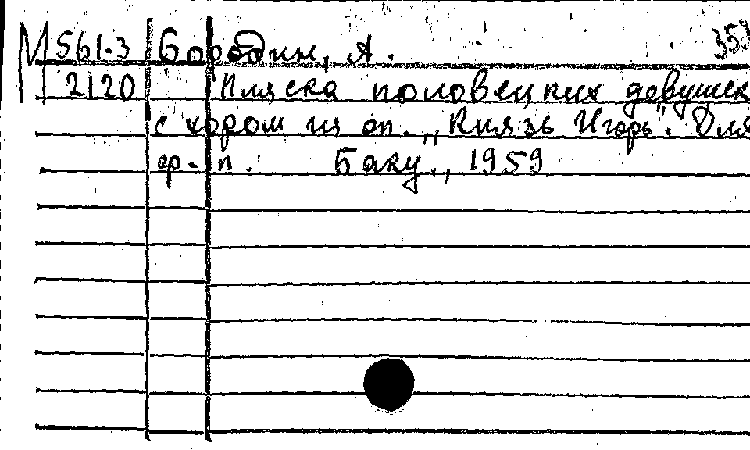 М 561-3 Бородин, А. 353
2120 Пляска половецких девушек
с хором из оп. „Князь Игорь". Для
ф.-п. Баку, 1959